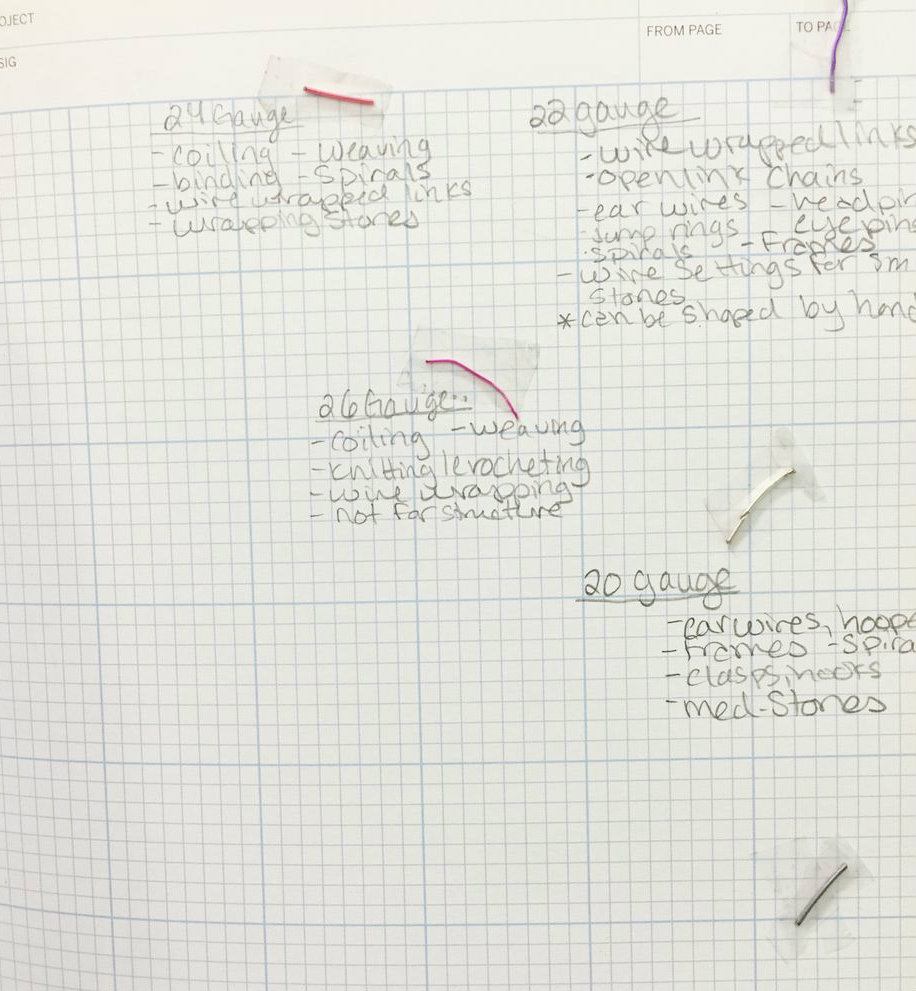 OJECT
SIG
FROM PAGE
TO PAG
24 Gauge
- coiling - weaving
- binding - Spirals
- wire wrapped links
- wrapping Stones
22 gauge
- wire wrapped links
- open link chains
- ear wires - headpin
- jump rings eyepins
- spirals - Frames
- wire Settings for Sm
Stones
* can be shaped by hand
26 Gauge
- coiling - weaving
- knitting/crocheting
- wire wrapping
- not for structure
20 gauge
- ear wires, hoops
- frames - Spira
- clasps, hooks
- med. Stones